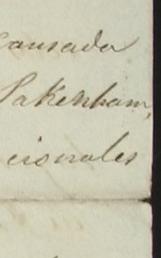 causada
Pakenham,
cionales